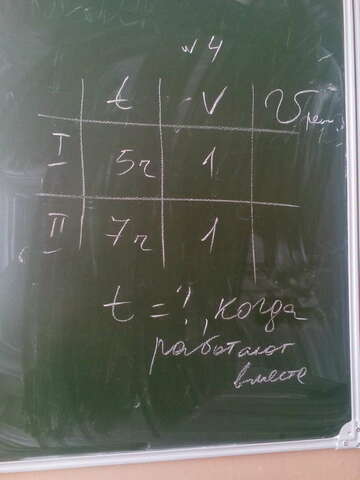 №4
t V V реш.
I 5ч 1
II 7ч 1
t = ?, когда
работают
вместе